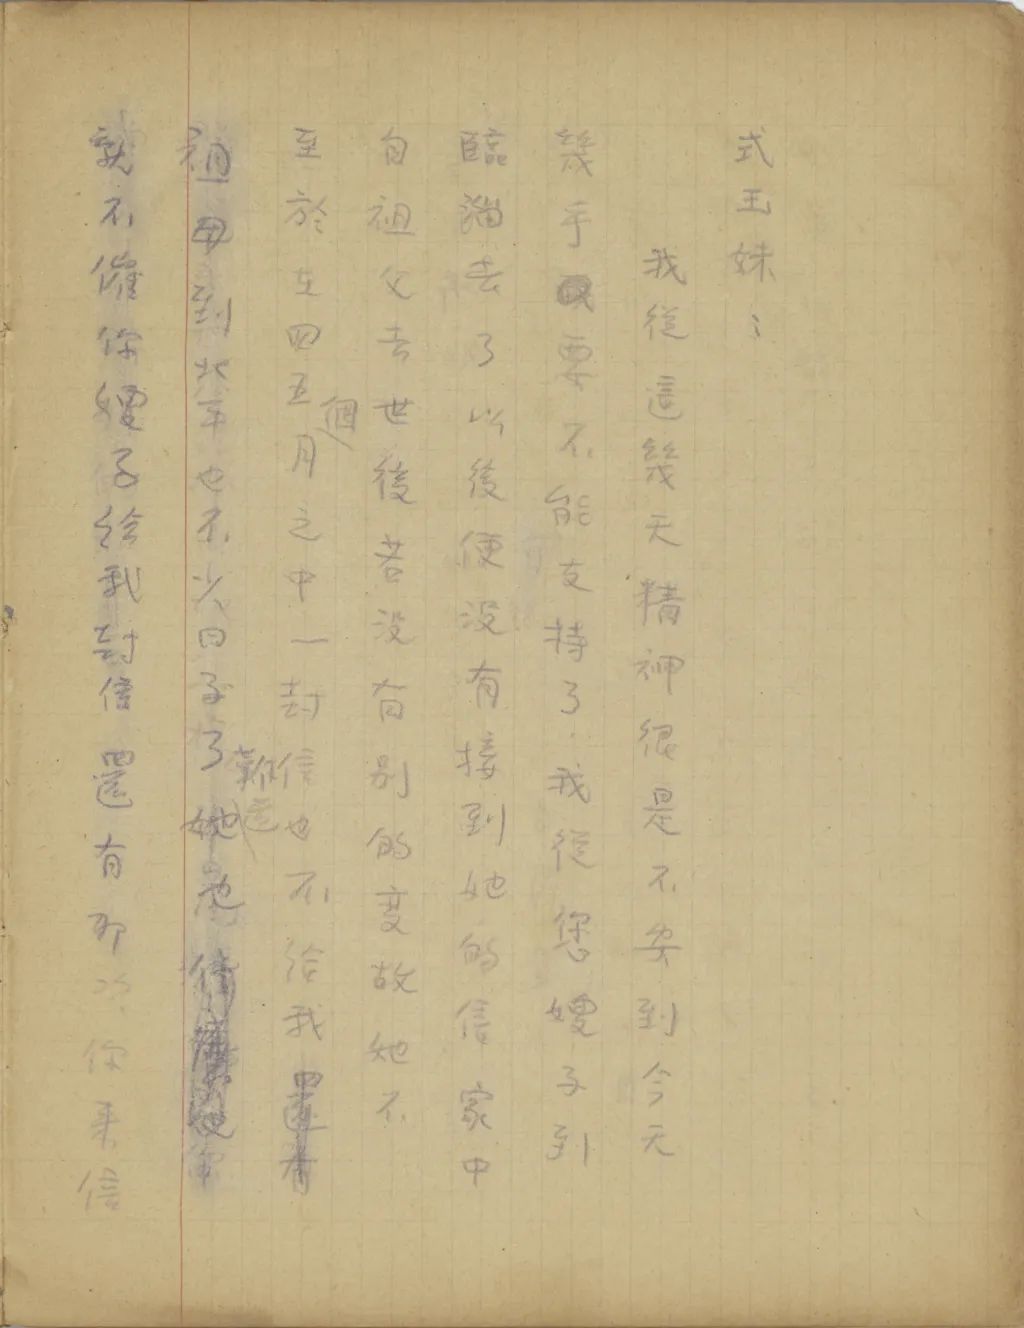 式玉妹：
我從這幾天精神很是不安到今天
幾乎要不能支持了．我從您嫂子到
臨淄去了以後便沒有接到她的信家中
自祖父去世後若沒有別的变故她不
至於在四五個月之中一封信也不給我還有
祖母到北平也不少日子了難道她也
就不催你嫂子給我封信還有那次你來信